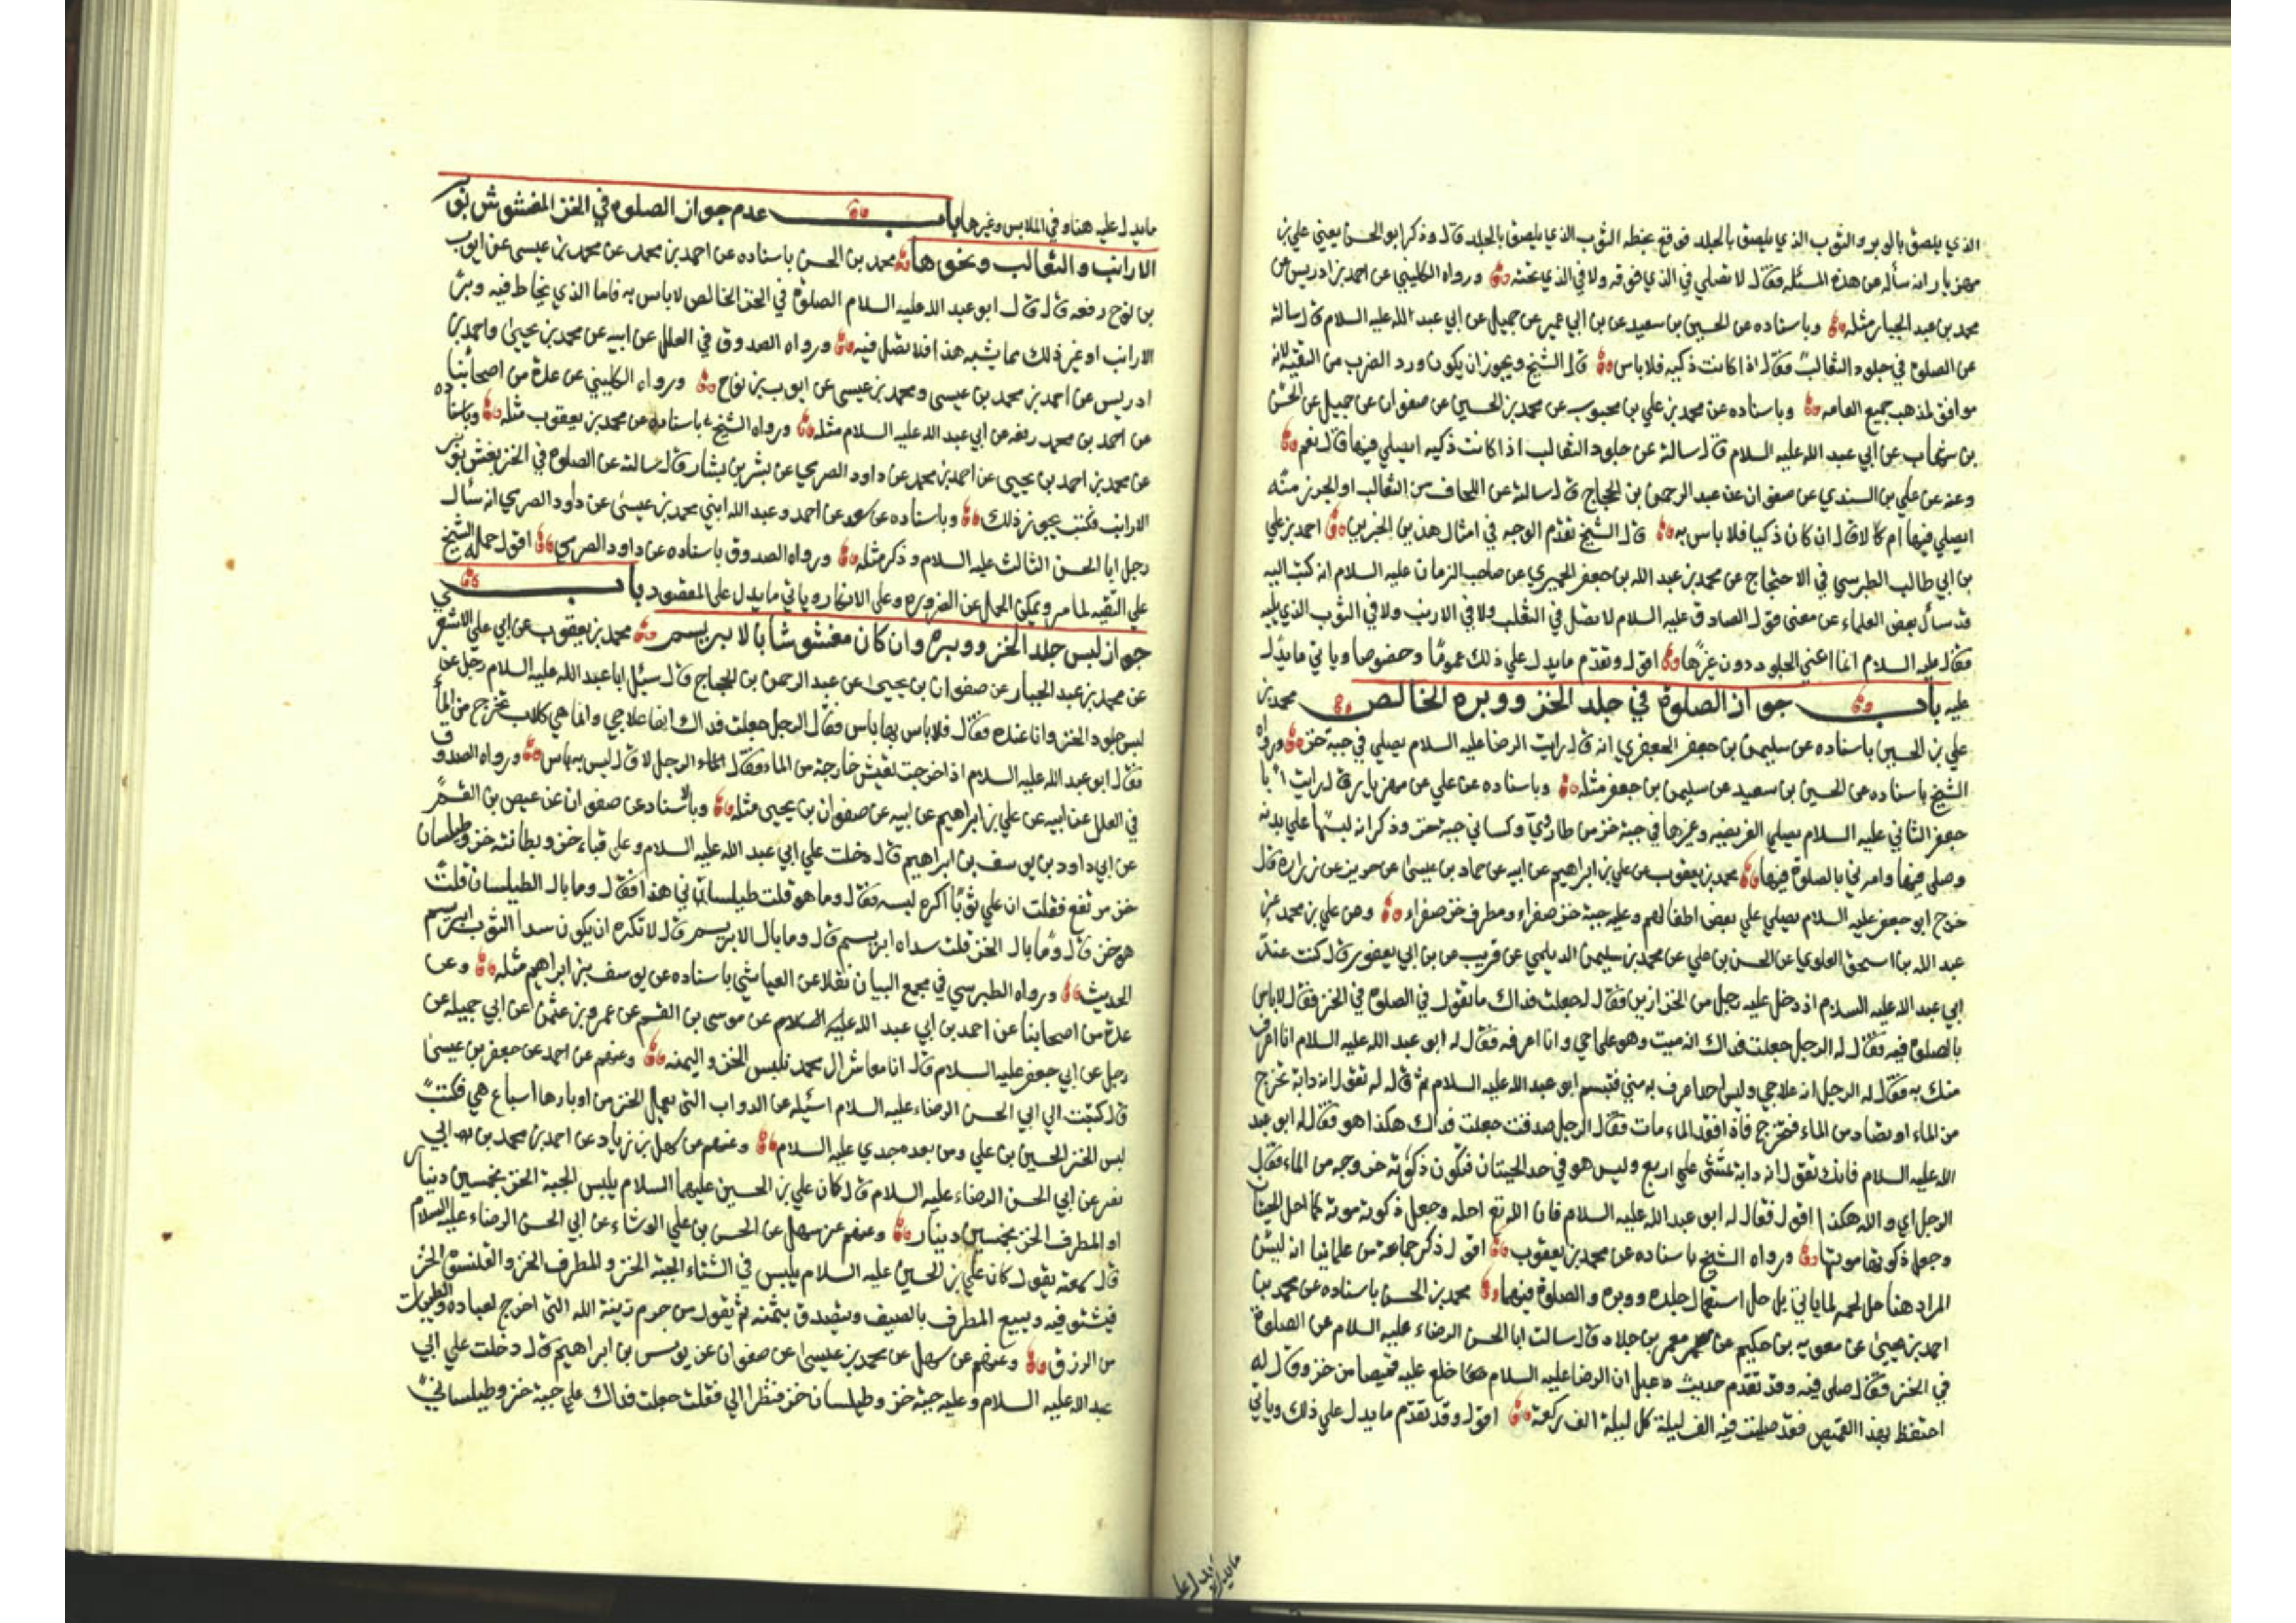 الذي يلصق بالوبر والثوب الذي يلصق بالجلد فوقع بخطه الثوب الذي يلصق بالجلد قال وذكر ابو الحسن يعني علي بن
مهزيار انه سأله عن هذه المسئله فقال لا تصلي في الذي فوقه ولا في الذي تحته ورواه الكليني عن احمد بن ادريس عن
محمد بن عبد الجبار مثله وباسناده عن الحسين بن سعيد عن بن ابي عمير عن جميل عن ابي عبد الله عليه السلام قال سالته
عن الصلوة في جلود الثعالب فقال اذا كانت ذكيه فلا باس قال الشيخ ويجوز ان يكون ورد الضرب من التقيه لانه
موافق لمذهب جميع العامه وباسناده عن محمد بن علي بن محبوب عن محمد بن الحسين عن صفوان عن جميل عن الحسن
بن شهاب عن ابي عبد الله عليه السلام قال سالته عن جلود الثعالب اذا كانت ذكيه ايصلي فيها قال نعم
وعنه عن علي بن السندي عن صفوان عن عبد الرحمن بن الحجاج قال سالته عن اللحاف من الثعالب او الجرز منه
ايصلي فيها ام لا قال ان كان ذكيا فلا باس به قال الشيخ تقدم الوجه في امثال هذين الخبرين احمد بن علي
بن ابي طالب الطبرسي في الاحتجاج عن محمد بن عبد الله بن جعفر الحميري عن صاحب الزمان عليه السلام انه كتب اليه
قد سأل بعض العلماء عن معنى قول الصادق عليه السلام لا تصل في الثعلب ولا في الارنب ولا في الثوب الذي يليه
فقال عليه السلام انما اعني الجلود دون غيرها اقول وتقدم ما يدل علي ذلك عموما وخصوصا وياتي ما يدل
عليه باب جواز الصلوة في جلد الخز ووبره الخالص محمد بن
علي بن الحسين باسناده عن سليمن بن جعفر الجعفري انه قال رايت الرضا عليه السلام يصلي في جبة خز ورواه
الشيخ باسناده عن الحسين بن سعيد عن سليمن بن جعفر مثله وباسناده عن علي عن مهزيار قال رايت ابا
جعفر الثاني عليه السلام يصلي الفريضه وغيرها في جبة خز من طاروي وكساني جبة خز وذكر انه لبسها علي بدنه
وصلى فيها وامرني بالصلوة فيها محمد بن يعقوب عن علي بن ابراهيم عن ابيه عن حماد بن عيسى عن حريز عن زرارة قال
خرج ابو جعفر عليه السلام يصلي علي بعض اطفالهم وعليه جبة خز صفراء ومطرف خز صفراء وعن علي بن محمد عن
عبد الله بن اسحق العلوي عن الحسن بن علي عن محمد بن سليمن الديلمي عن قريب عن بن ابي يعفور قال كنت عند
ابي عبد الله عليه السلام اذ دخل عليه رجل من الخزازين فقال له جعلت فداك ما تقول في الصلوة في الخز فقال لا باس
بالصلوة فيه فقال له الرجل جعلت فداك انه ميت وهو علاجي وانا اعرفه فقال له ابو عبد الله عليه السلام انا اعرف
منك به فقال له الرجل انه علاجي وليس احد اعرف به مني فتبسم ابو عبد الله عليه السلام ثم قال له تقول انه دابة تخرج
من الماء او تصاد من الماء فتخرج فاذا فقد الماء مات فقال الرجل صدقت جعلت فداك هكذا هو فقال له ابو عبد
الله عليه السلام فانك تقول انه دابة تمشي علي اربع وليس هو في حد الحيتان فتكون ذكوته خروجه من الماء فقال
الرجل اي والله هكذا اقول فقال له ابو عبد الله عليه السلام فان الله تع احله وجعل ذكوته موته كما احل الحيتان
وجعل ذكوتها موتها ورواه الشيخ باسناده عن محمد بن يعقوب اقول ذكر جماعة من علمائنا انه ليس
المراد هنا حل لحمه لما ياتي بل حل استعمال جلده ووبره والصلوة فيهما محمد بن الحسن باسناده عن محمد بن
احمد بن يحيى عن معويه بن حكيم عن معمر بن خلاد قال سالت ابا الحسن الرضاء عليه السلام عن الصلوة
في الخز فقال صلى فيه وقد تقدم حديث دعبل ان الرضا عليه السلام خلع عليه قميصا من خز وقال له
احتفظ بهذا القميص فقد صليت فيه الف ليلة كل ليلة الف ركعة اقول وقد تقدم ما يدل علي ذلك وياتي
ما يدل عليه هنا وفي الملابس وغيرها باب عدم جواز الصلوة في الخز المغشوش بوبر
الارانب والثعالب ونحوها محمد بن الحسن باسناده عن احمد بن محمد عن محمد بن عيسى عن ايوب
بن نوح رفعه قال قال ابو عبد الله عليه السلام الصلوة في الخز الخالص لا باس به فاما الذي يخلط فيه وبر
الارانب او غير ذلك مما يشبه هذا فلا تصل فيه ورواه الصدوق في العلل عن ابيه عن محمد بن يحيى واحمد بن
ادريس عن احمد بن محمد بن عيسى ومحمد بن عيسى عن ايوب بن نوح ورواه الكليني عن عدة من اصحابنا
عن احمد بن محمد رفعه عن ابي عبد الله عليه السلام مثله ورواه الشيخ باسناده عن محمد بن يعقوب مثله وباسناده
عن محمد بن احمد بن يحيى عن احمد بن محمد عن داود الصرمي عن بشر بن بشار قال سالته عن الصلوة في الخز يغش بوبر
الارانب فكتب يجوز ذلك وباسناده عن سعد عن احمد وعبد الله ابني محمد بن عيسى عن داود الصرمي انه سأل
رجل ابا الحسن الثالث عليه السلام وذكر مثله ورواه الصدوق باسناده عن داود الصرمي اقول حمله الشيخ
علي التقيه لما مر ويمكن الحمل عن الضروره وعلى الانكار وياتي ما يدل على المقصود باب في
جواز لبس جلد الخز ووبره وان كان مغشوشا بالابريسم محمد بن يعقوب عن ابي علي الاشعر
عن محمد بن عبد الجبار عن صفوان بن يحيى عن عبد الرحمن بن الحجاج قال سئل ابا عبد الله عليه السلام رجل عن
لبس جلود الخز وانا عنده فقال فلا باس بها باس فقال الرجل جعلت فداك انها علاجي وانما هي كلاب تخرج من الما
فقال ابو عبد الله عليه السلام اذا خرجت تعيش خارجة من الماء فقال الرجل لا قال ليس به باس ورواه الصدوق
في العلل عن ابيه عن علي بن ابراهيم عن ابيه عن صفوان بن يحيى مثله وبالاسناد عن صفوان عن عيص بن القسم
عن ابي داود بن يوسف بن ابراهيم قال دخلت علي ابي عبد الله عليه السلام وعلى قباء خز وبطانته خز وطيلسان
خز مرتفع فقلت ان علي ثوبا اكره لبسه فقال وما هو قلت طيلساني هذا فقال وما بال الطيلسان قلت
هو خز قال وما بال الخز قلت سداه ابريسم قال وما بال الابريسم قال لا تكره ان يكون سدا الثوب ابريسم
الحديث ورواه الطبرسي في مجمع البيان نقلا عن العياشي باسناده عن يوسف بن ابراهيم مثله وعن
عدة من اصحابنا عن احمد بن ابي عبد الله عليه السلام عن موسى بن القسم عن عمرو بن عثمن عن ابي جميله عن
رجل عن ابي جعفر عليه السلام قال انا معاشر ال محمد نلبس الخز واليمنه وعنهم عن احمد عن جعفر بن عيسى
قال كتبت الى ابي الحسن الرضاء عليه السلام اسئله عن الدواب التي يعمل الخز من اوبارها اسباع هي فكتب
لبس الخز الحسين بن علي ومن بعده جدي عليه السلام وعنهم عن سهل بن زياد عن احمد بن محمد بن ابي
نصر عن ابي الحسن الرضاء عليه السلام قال كان علي بن الحسين عليهما السلام يلبس الجبة الخز بخمسين دينار
او المطرف الخز بخمسين دينار وعنهم عن سهل عن الحسن بن علي الوشاء عن ابي الحسن الرضاء عليه السلام
قال سمعته يقول كان علي بن الحسين عليه السلام يلبس في الشتاء الجبة الخز والمطرف الخز والقلنسوة الخز
فيشتو فيه ويبيع المطرف بالصيف ويتصدق بثمنه ثم يقول من حرم زينة الله التي اخرج لعباده والطيبات
من الرزق وعنهم عن سهل عن محمد بن عيسى عن صفوان عن يونس بن ابراهيم قال دخلت علي ابي
عبد الله عليه السلام وعليه جبة خز وطيلسان خز فنظر الي فقلت جعلت فداك علي جبة خز وطيلساني